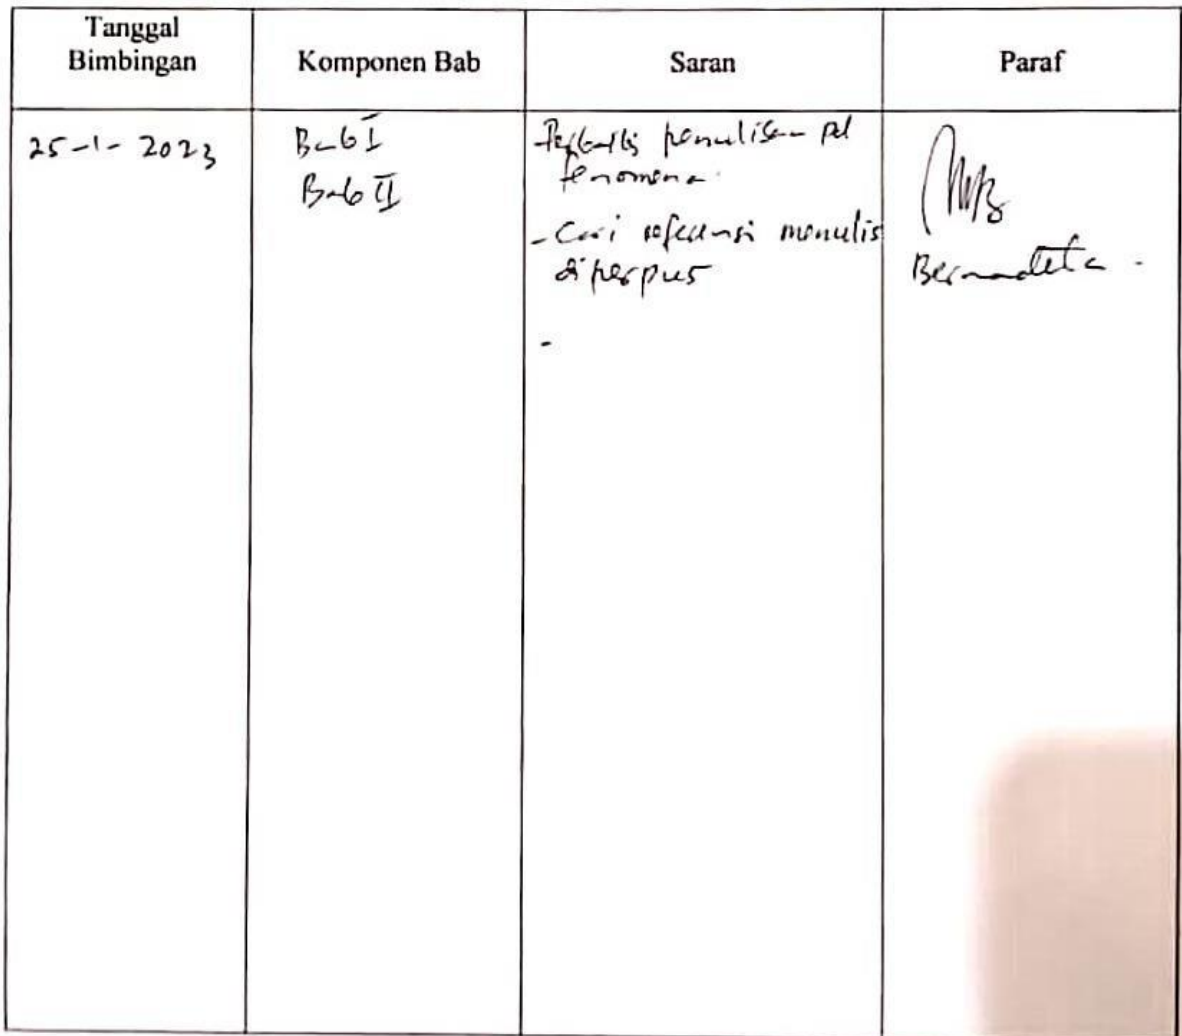 Tanggal
Bimbingan
Komponen Bab
Saran
Paraf
25-1-2023
Bab I
Bab II
Perbaiki penulisan pd
fenomena.
- Cari referensi menulis
di perpus
-
Bernadeta.